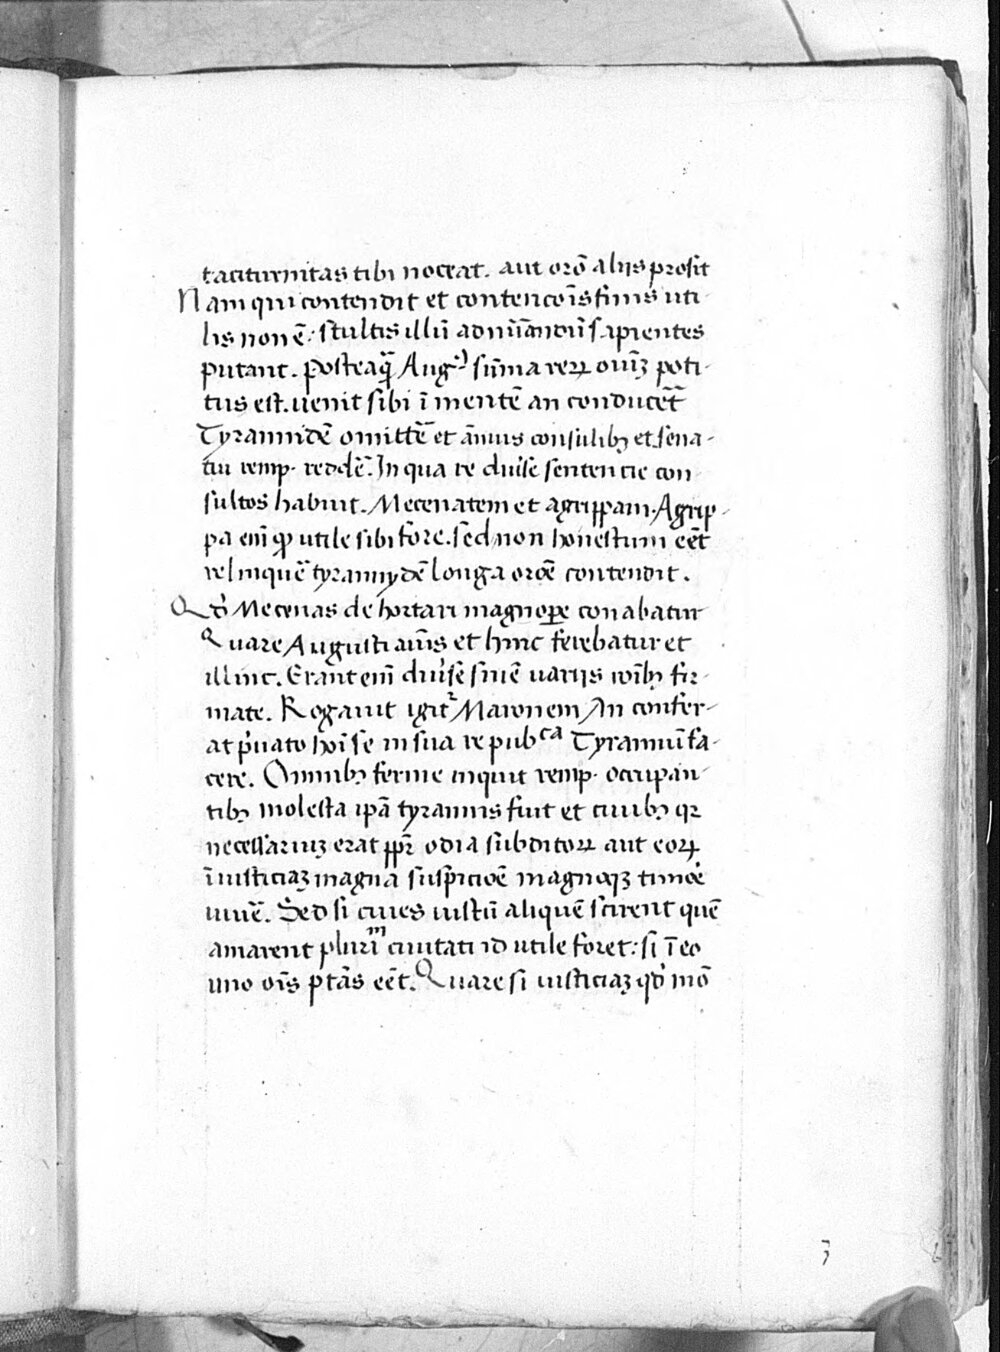 taciturnitas tibi noceat. aut orõ alijs prosit
Nam qui contendit et contencõis finis uti-
lis non ẽ: stultis illũ adnũãndũ sapientes
putant. Posteaq̃ᷓ Augꝰ sũma reꝝ oĩuꝫ poti-
tus est. uenit sibi ĩ mentẽ an conducẽt
Tyrannidẽ omittẽ et ãnuus consulibꝫ et sena-
tui remp. reddẽ. In qua re diuise sentencie con-
sultos habuit. Mecenatem et agrippam. Agrip-
pa em̃ ꝙ utile sibi fore. sed non honestum eẽt
relinquẽ tyrannydẽ longa orõe contendit.
Qd̾ Mecenas dehortari magnopere conabatur
Quare Augusti aĩus et hinc ferebatur et
illinc. Erant em̃ diuise sniẽ uarijs rõibꝫ fir-
mate. Rogauit igit᷑ Maronem An confer-
at p̾uato hoĩ se in sua repubᶜᵃ Tyrannũ fa-
cere. Omnibꝫ ferme inquit remp. occupan-
tibꝫ molesta ip̃a tyrannis fuit et ciuibꝫ qꝛ
necessariuꝫ erat ꝓpꝛ odia subditoꝝ aut eoꝝ
ĩiusticiaꝫ magna suspicioẽ magnoqꝫ timoẽ
uiuẽ. Sed si ciues iustũ aliquẽ scirent quẽ
amarent plurĩᵐ ciuitati id utile foret: si ĩ eo
uno oĩs ptãs eẽt. Quare si iusticiaꝫ qd̾ mõ
3